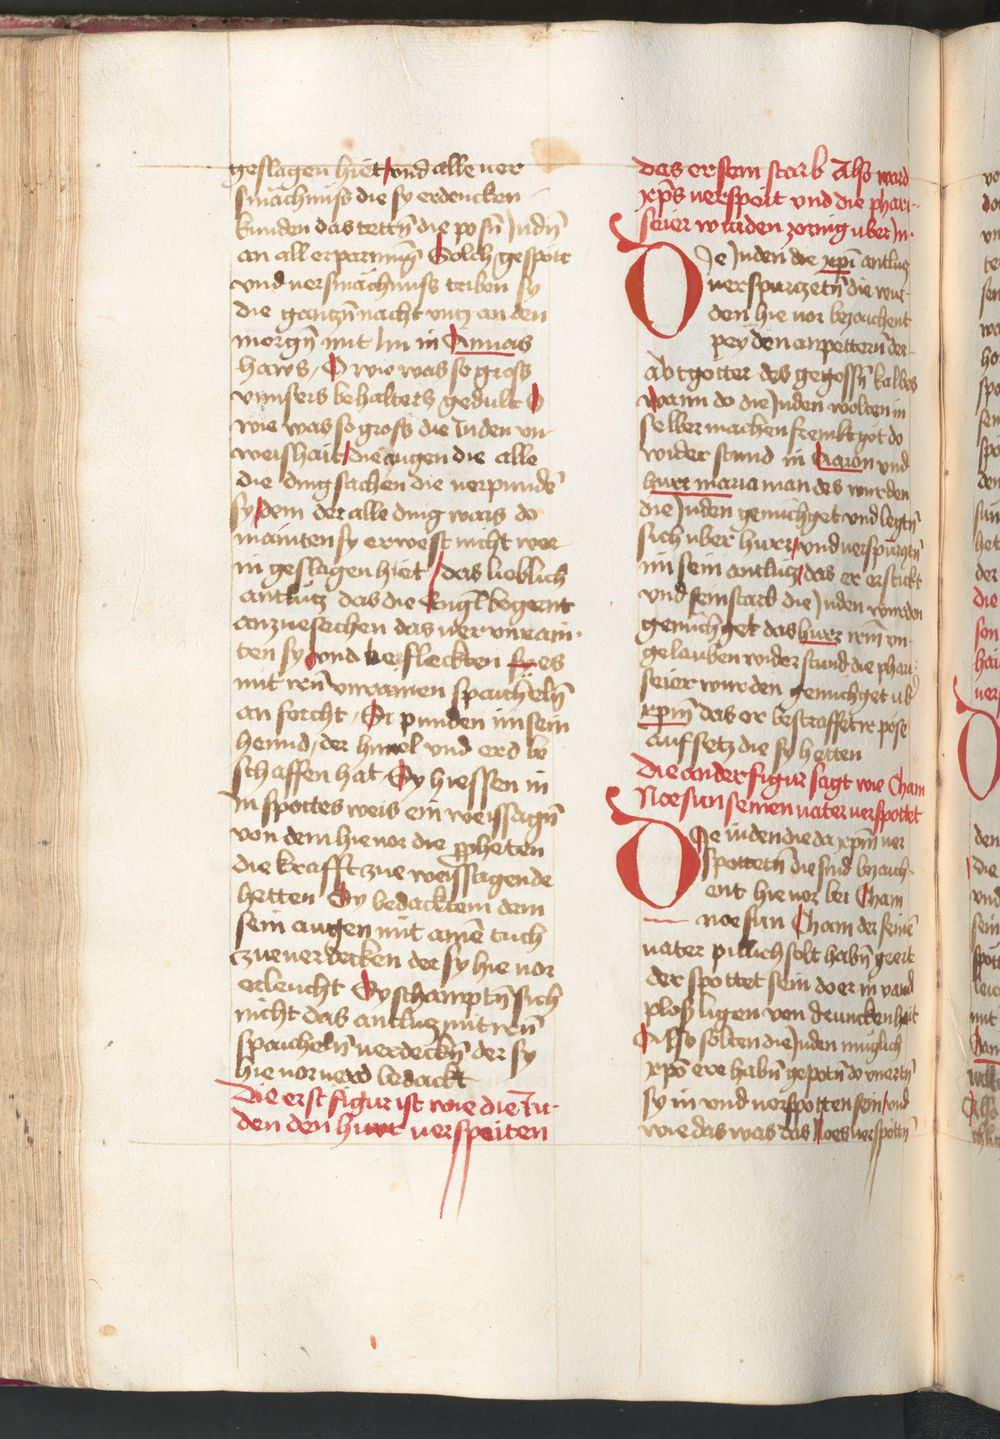 geslagen hiet und alle ver
smachnuss die sy erdencken
kunden das tettn̄ die posn̄ Judn̄
an all erparmūg Solch gespöt
und versmächnuss triben sy
die gantzn̄ nacht vntz an den
morgn̄ mit Im in Annas
haws / O wie was so gross
vnnsers behalters gedult O
wie was so gross die Juden vn
weishait die augen die alle
die ding sachen die verpundē
sy dem der alle ding wais do
mainten sy er west nicht wer
in geslagen hiet / das lieblich
antlütz das die Engl begernt
anzuesechen das verunrain
ten sy und befleckten es
mit irn̄ vnrainen spaicheln̄
an forcht / Si punden im sein
hennd / der himel und erd be
schaffen hat Sy hiessen in
In spottes weis ein weissagn̄
von dem hie vor die pheten
die krafft zue weyssagende
hetten Sy bedackten dem
sein augen mit ainē tuch
zue verdecken der sy hie vor
erleucht Sy schamptn̄ sich
nicht das antlutz mit irn̄
spaicheln̄ verdeckn̄ der sy
hie vor bedackt
Die erst figur ist wie die Iu-
den den hurr verspeiten
das er sein starb Also ward
xps̄ verspeit und die phari-
seier wurden zornig uber In.
DJe Juden die xpi antlutz
verspurczetn̄ die wur-
den hie vor bezaichent
pey den anpettern der
abtgotter des gegossn̄ kalbes
wann do die Juden wolten in
selber machen fremkt got do
wider stund in Aaron und
hurr maria man des wurden
die Juden gemühget und legtn̄
sich uber hurr und verspurtzn̄
im sein antlutz das er erstickt
und sein starb die Juden wurden
gemühget das hurr irm̄ vn
gelauben wider stund die phari
seier wurden gemühget ub̄
xpm̄ das er bestraffet ir pose
aufsetz die sy hetten
Die ander figur sagt wie Cham
Noe sun seinen vater verspottet
DJe iuden die da xpm̄ ver
spottetn̄ die sind bezaich-
ent hie vor bei Cham
noe sun Cham der seinē
vater pillich solt habn̄ geert
der spottet sein do er in vand
plosz ligen von drunckenheit
Also solten die Juden muglich
xpō ere habn̄ gepotn̄ do vnertn̄
sy in und verspotten sein und
wie das was das Noe verspottn̄